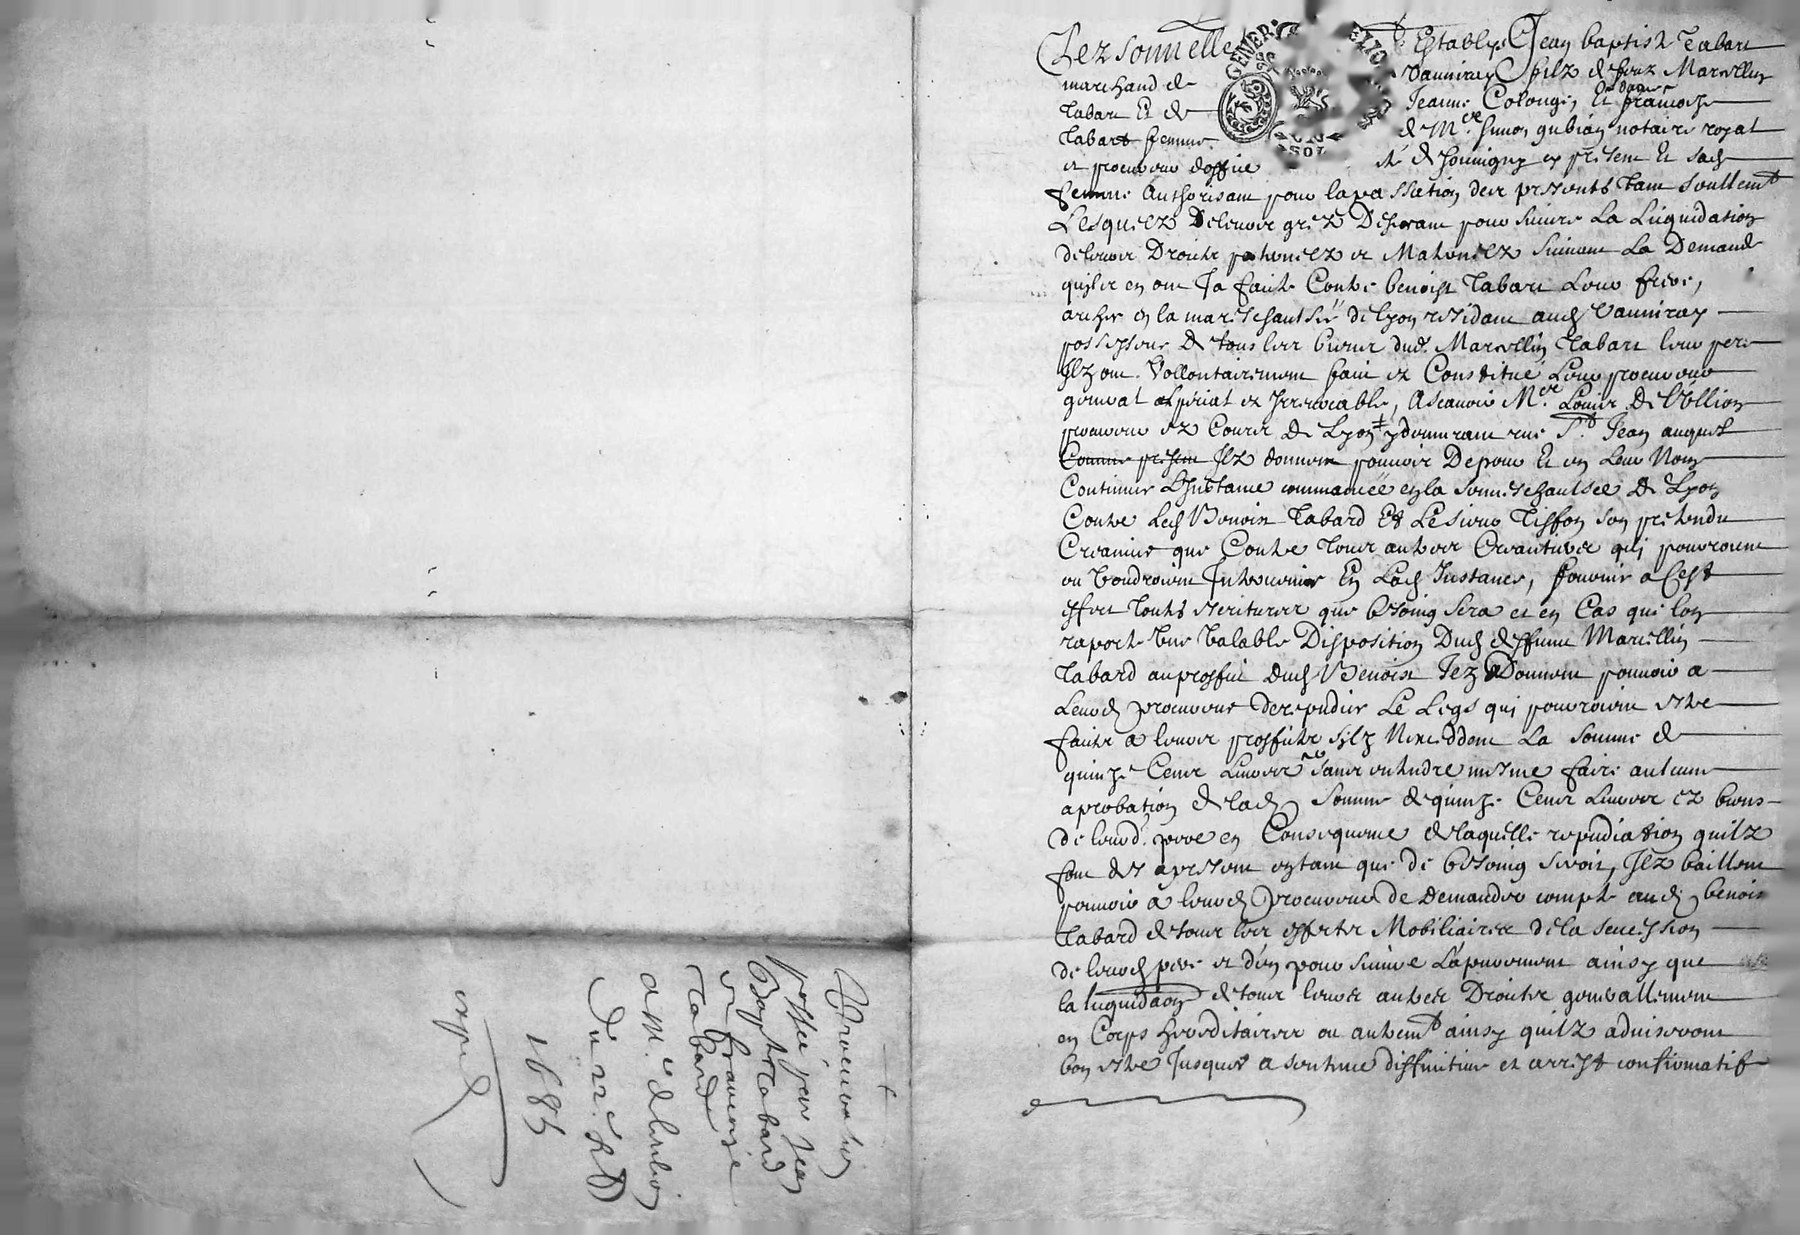 Personnelle Establys Jean baptiste Tabart
marchand de Vauneray filz de feuz Marcellin
Tabart Et de Jeanne Colonge, Et dame francoise
Tabart femme de Me simon gubian notaire royal
et procureur doffice de Souvigny cy present Et sad
femme Authorisant pour la passation des presents tant seullemt
Lesquelz De leur grez Desirant pour suivre La Liquidation
de leurs Droicts paternelz et Maternelz suivant La Demande
quilz en ont Ja faicte Contre benoist Tabart Leur frere,
archer en la mareschaussée de lyon residant aud Vauneray
possesseur De tous les biens dud. Marcellin Tabart leur pere
Ilz ont Vollontairement fait et Constitué Leur procureur
general especial et Irrevocable, Ascavoir Me Louis De
procureur ez Cours De Lyon y demeurant rue St Jean
Comme present Ilz donnent pouvoir De pour Et en Leur Nom
Continuer L'Instance commancée en la Sennechaussée De Lyon
Contre Led Benoist Tabard Et Le sieur Tisson son pretendu
Creancier que Contre tous autres Creantiers qui pourroient
ou Voudroient Intervenir En Lad Instance, fournir a Cest
effect toutes escritures que besoing sera et en Cas que lon
raporte une Valable Disposition Dud deffunt Marcellin
Tabard au proffit dud Benoist Ilz Donnent pouvoir a
Leurd procureur de repudier Le Legs qui pourroient estre
faicts a leurs profficts silz N'exceddent La somme de
quinze Cens Livres sans entendre mesme faire aulcune
aprobation de lad somme de quinze Cens Livres ez biens
de leurd. pere en Consequence de laquelle repudiation quilz
font des a present en tant que de besoing seroit, Ilz baillent
pouvoir a leurd procureur de Demander compte aud benoist
Tabard de tous les effects Mobiliaires de la succession
de leurd pere et d'en poursuivre La payement ainsy que
la liquidaon de tous leurs autres Droicts generallement
en Corps hereditaires ou autremt ainsy quilz adviseront
bon estre Jusques a sentence diffinitive et arrest confirmatif
Procuration
passée par Jean
Bapte Tabard
et francoise
Tabard
a Me de
Du 22e
1685